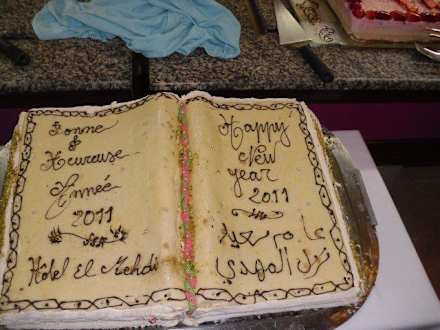 Bonne
&
Heureuse
Année
2011
Hôtel El Mehdi
Happy
New
year
2011
عام سعيد
نزل المهدي